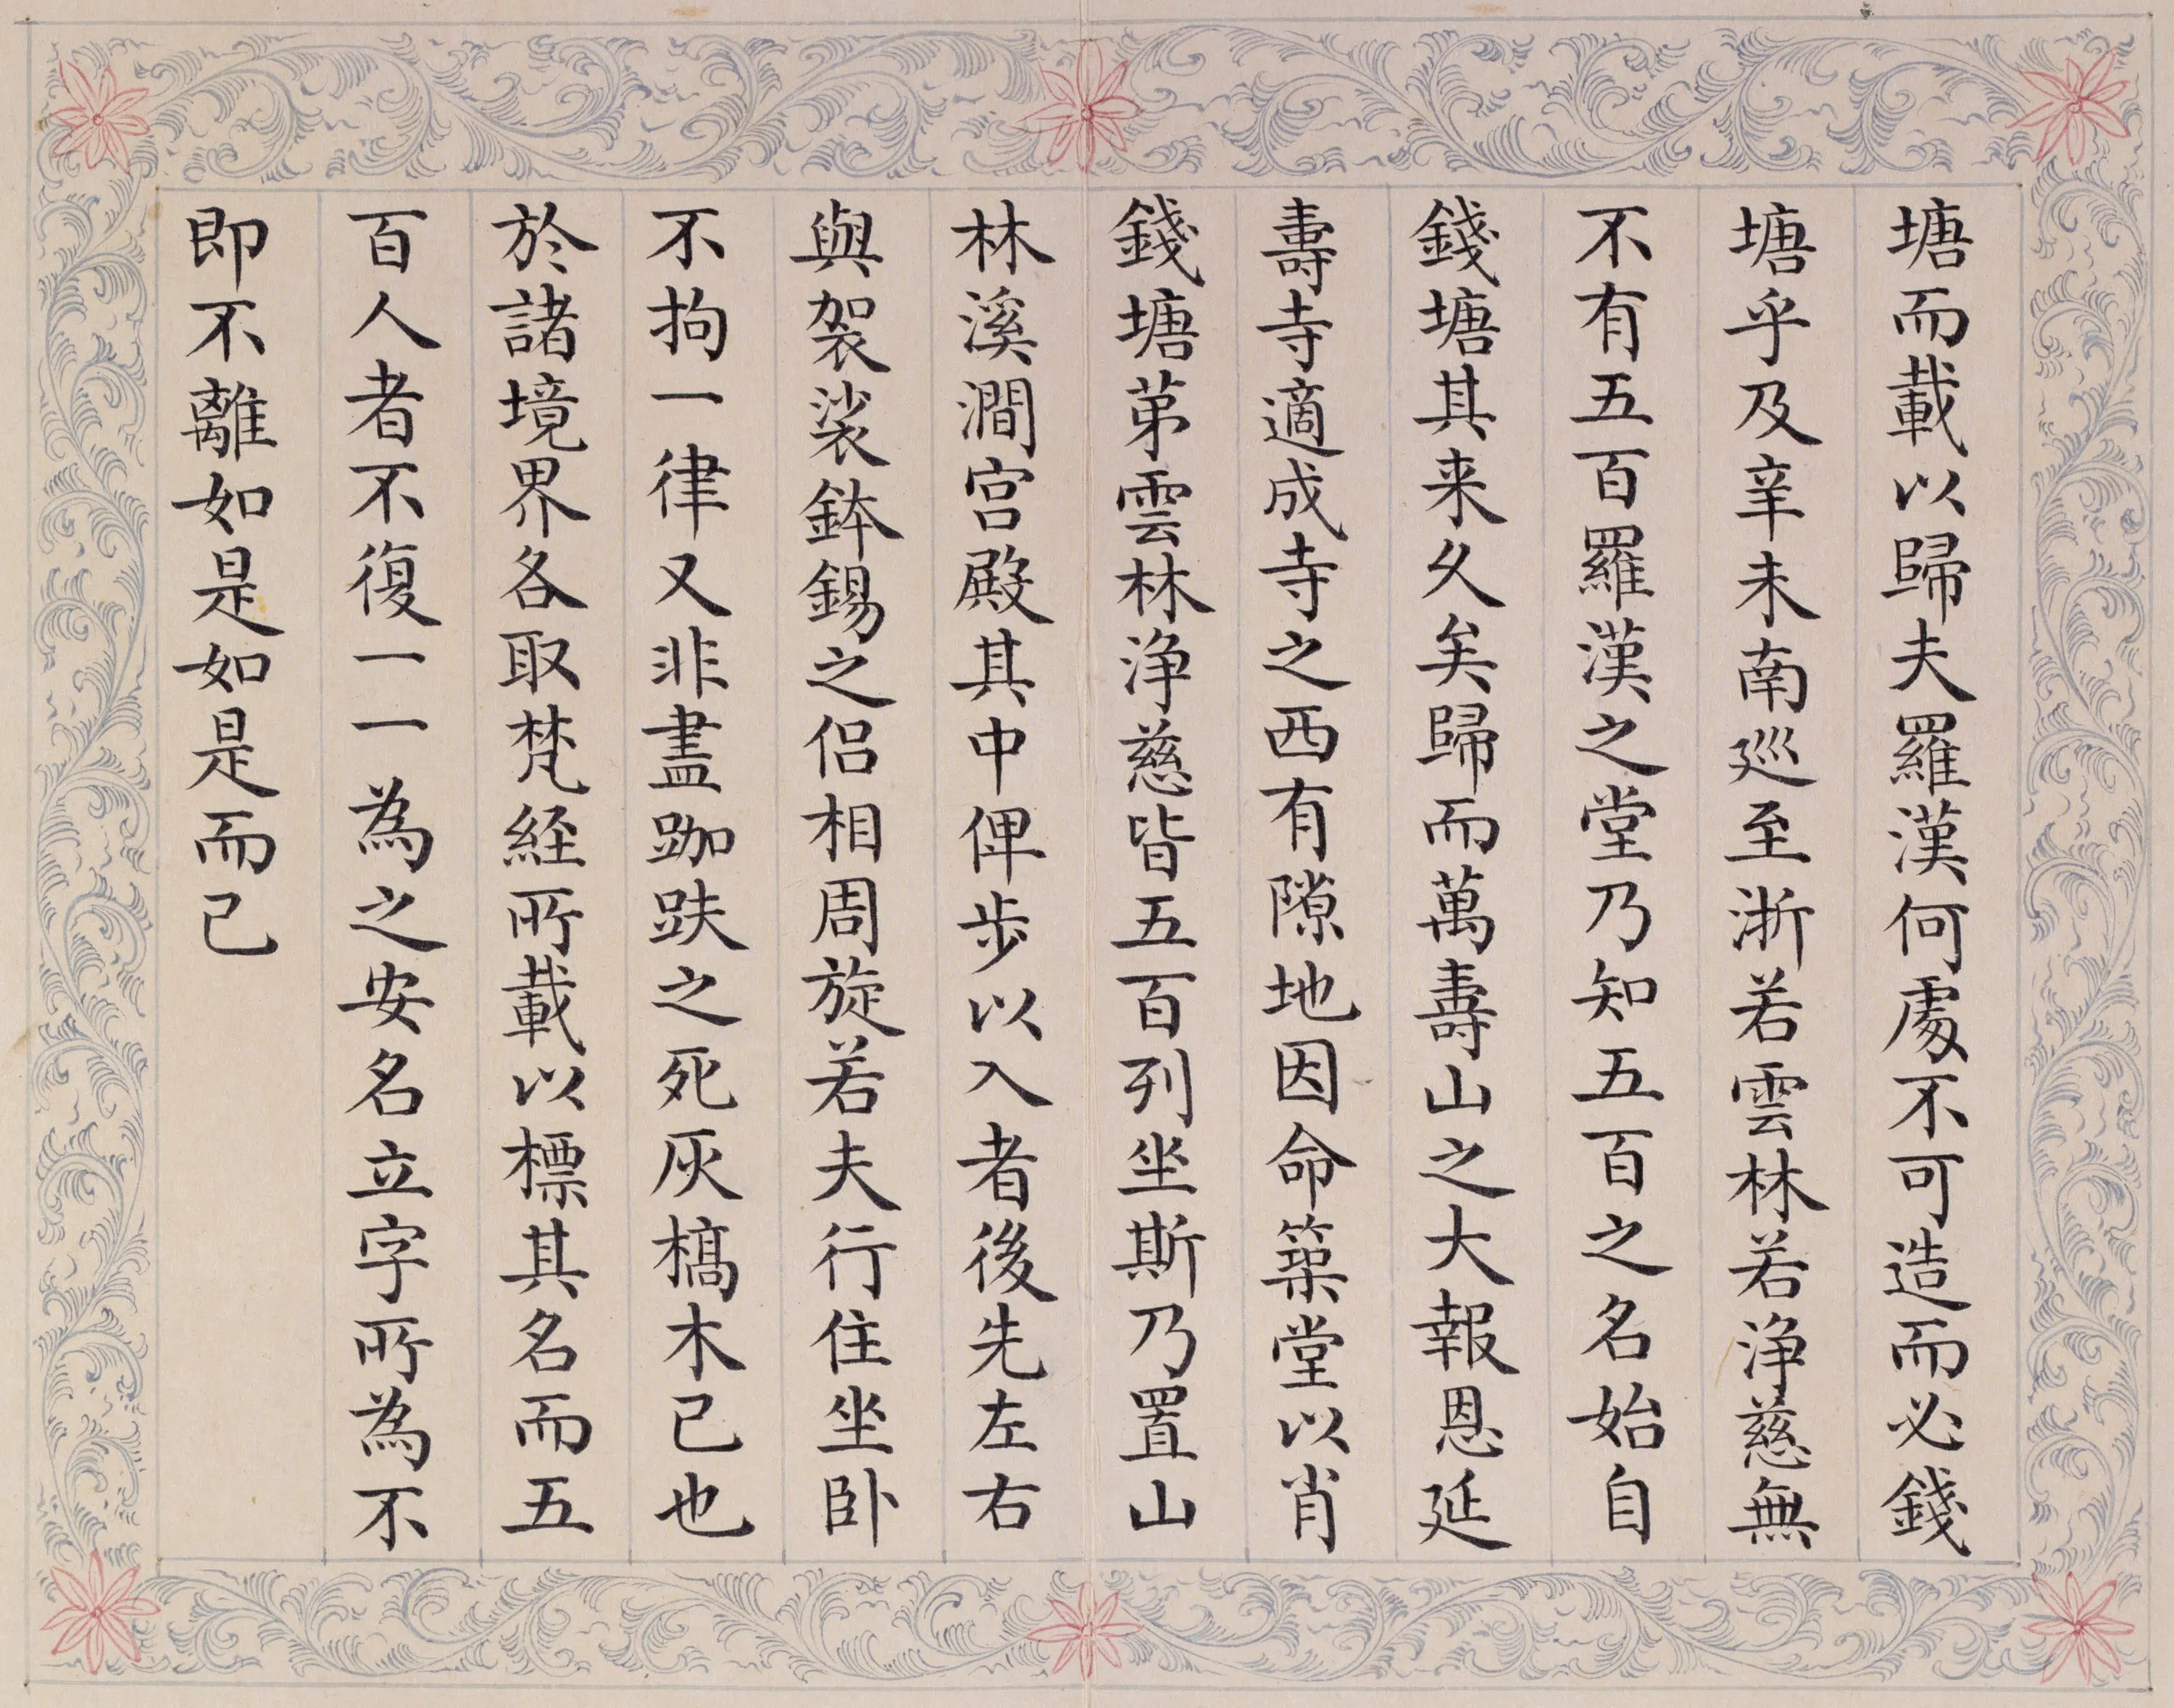 塘而載以歸夫羅漢何處不可造而必錢
塘乎及辛未南巡至浙若雲林若淨慈無
不有五百羅漢之堂乃知五百之名始自
錢塘其来久矣歸而萬壽山之大報恩延
壽寺適成寺之西有隙地因命築堂以肖
錢塘苐雲林淨慈皆五百列坐斯乃置山
林溪澗宮殿其中俾步以入者後先左右
與袈裟鉢錫之侣相周旋若夫行住坐卧
不拘一律又非盡跏趺之死灰槁木已也
於諸境界各取梵経所載以標其名而五
百人者不復一一為之安名立字所為不
即不離如是如是而已